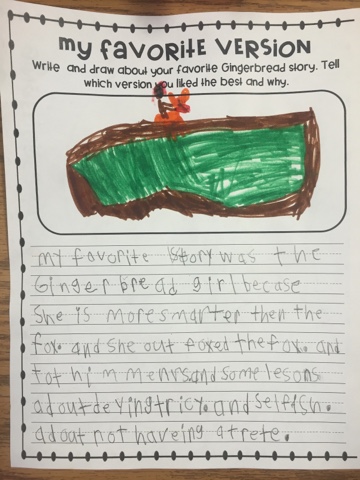 my FAVORITE VERSION
Write and draw about your favorite Gingerbread story. Tell
which version you liked the best and why.
my favorite story was the
Gingerbread girl becase
She is more smarter then the
fox. and she out foxed the fox. and
tot him menrs and some lesons
adout deyingtricy. and Selfish.
adoat not haveing a trete.